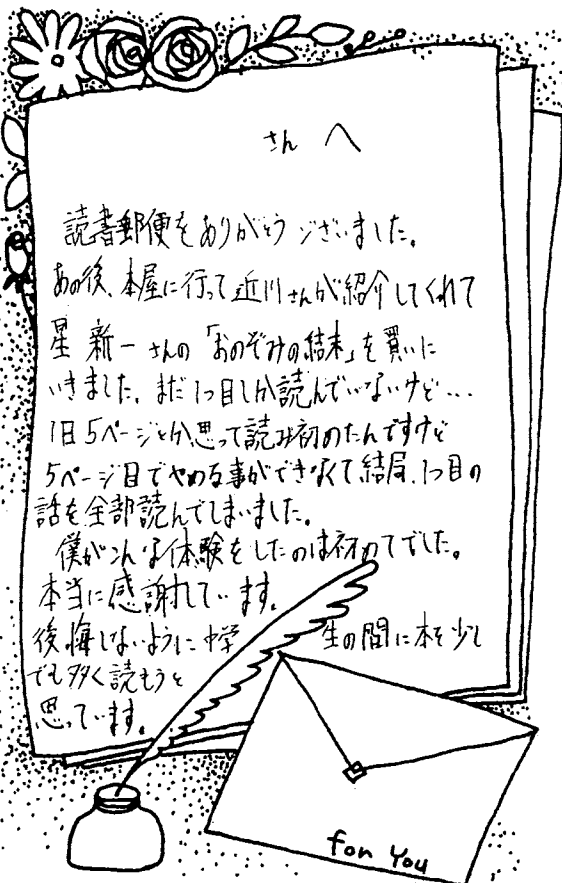 さんへ
読書郵便をありがとうございました。
あの後、本屋に行って近川さんが紹介してくれて
星新一さんの「おのぞみの結末」を買いに
いきました。まだ1つ目しか読んでいないけど...
1日5ページとか思って読み初めたんですけど
5ページ目でやめる事ができなくて結局、1つ目の
話を全部読んでしまいました。
僕がこんな体験をしたのは初めてでした。
本当に感謝しています。
後悔しないように中学生の間に本を少し
でも多く読もうと
思っています。
for You